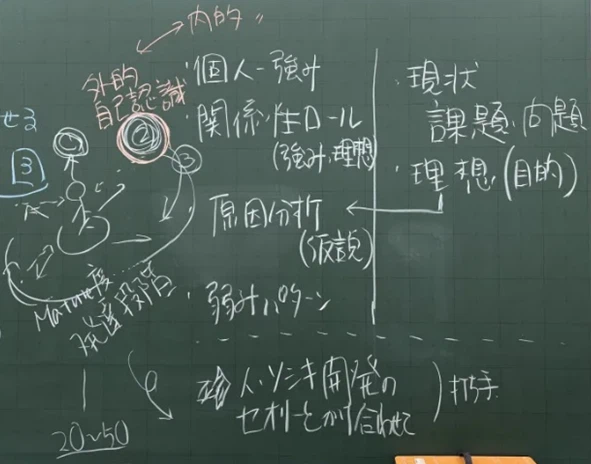 内的 〃
外的
自己認識
・個人-強み
・関係・性ロール
(強み、理想)
原因分析
(仮説)
・弱みパターン
・現状
課題、問題
・理想(目的)
せる
3
2
3
Mature度
発達段階
20〜50
人・ソシキ開発の
セオリーとかけ合わせて
打ち手